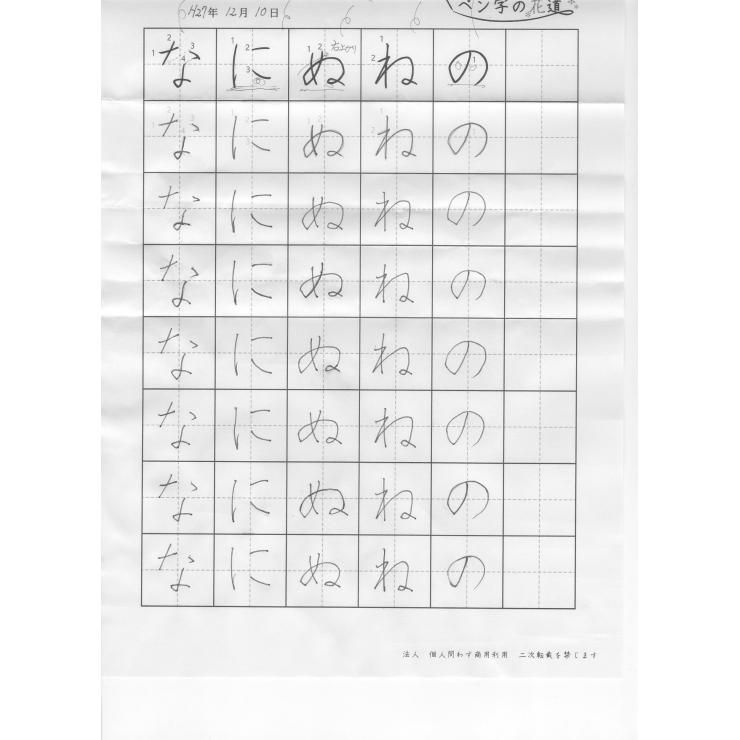 H27年 12月 10日 ペン字の花道
1 2 3 4 な 1 2 3 に 1 2 ぬ 右上がり 1 2 ね 1 の
な に ぬ ね の
な に ぬ ね の
な に ぬ ね の
な に ぬ ね の
な に ぬ ね の
な に ぬ ね の
な に ぬ ね の
法人 個人問わず商用利用 二次転載を禁じます